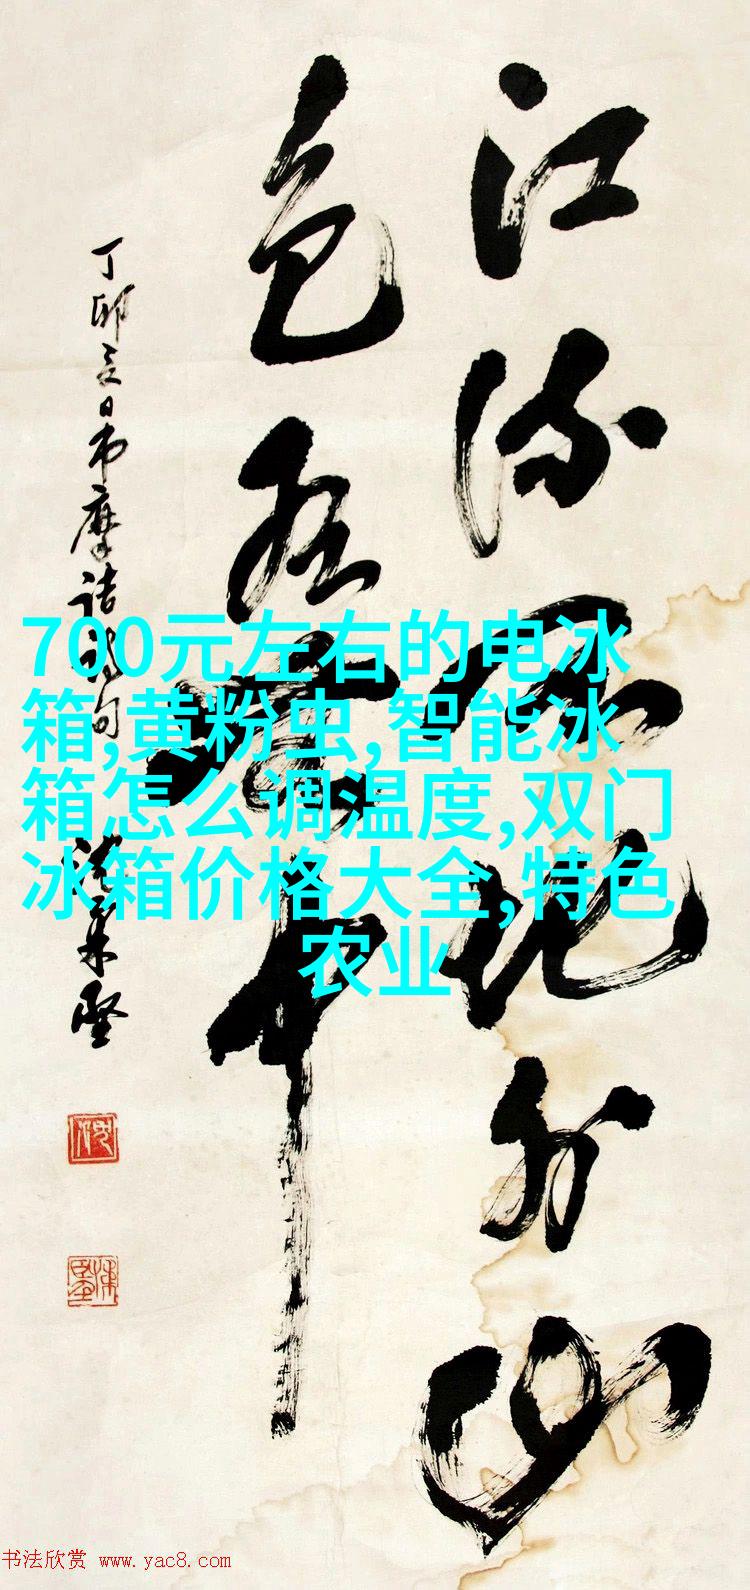 江流天地外山
色有無中
丁卯夏日书摩诘诗句
700元左右的电冰
箱,黄粉虫,智能冰
箱怎么调温度,双门
冰箱价格大全,特色
农业
书法欣赏 www.yac8.com